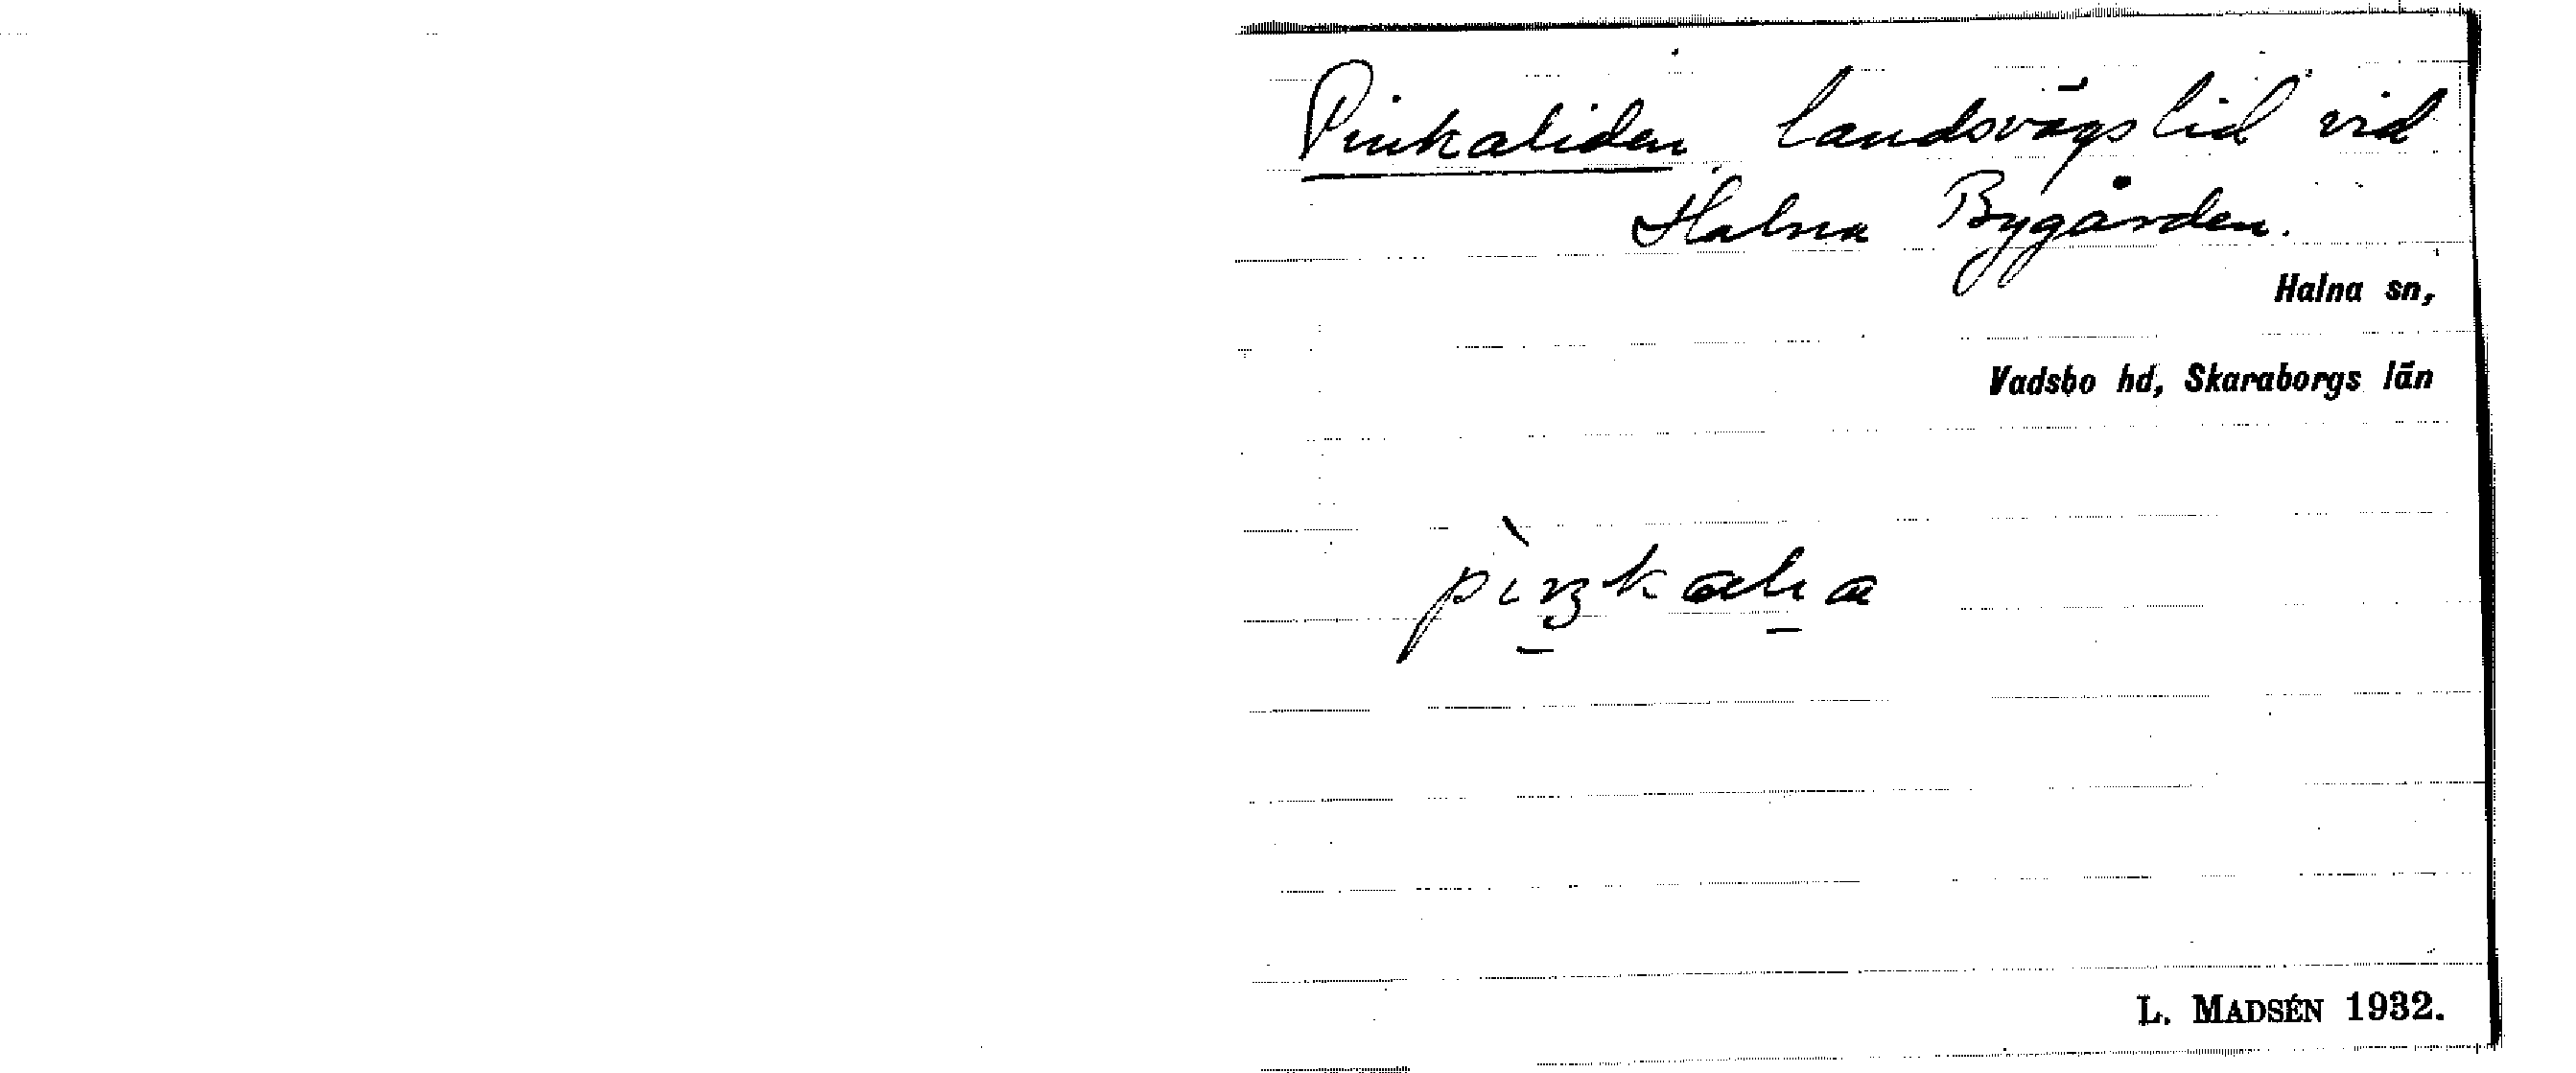 Pinkaliden landsvägslid vid
Halna Bygården.
Halna sn,
Vadsbo hd, Skaraborgs län
L. MADSÉN 1932.